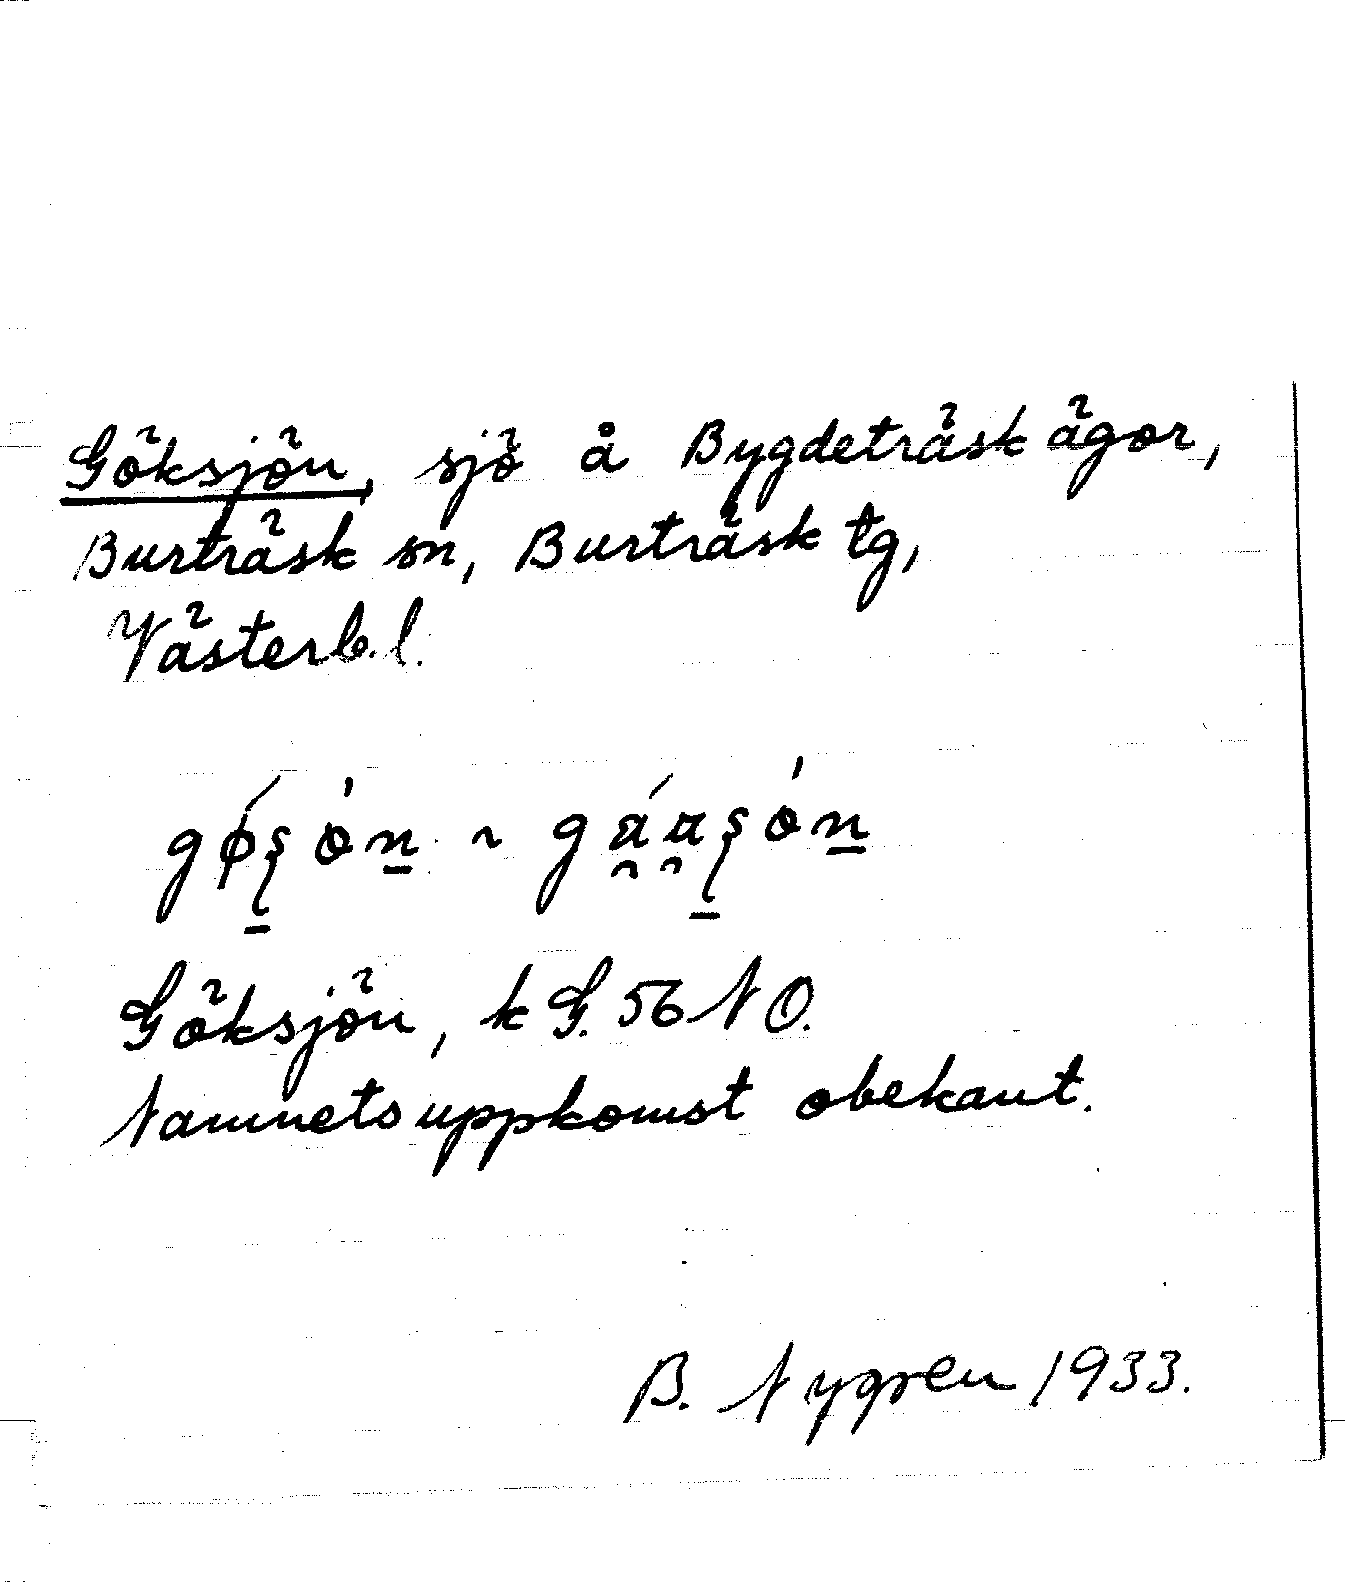 Göksjön, sjö å Bygdeträsk ägor,
Burträsk sn, Burträsk tg,
Västerb. l.
Göksjön, k G. 56 N O.
Namnets uppkomst obekant.
B. Nygren 1933.